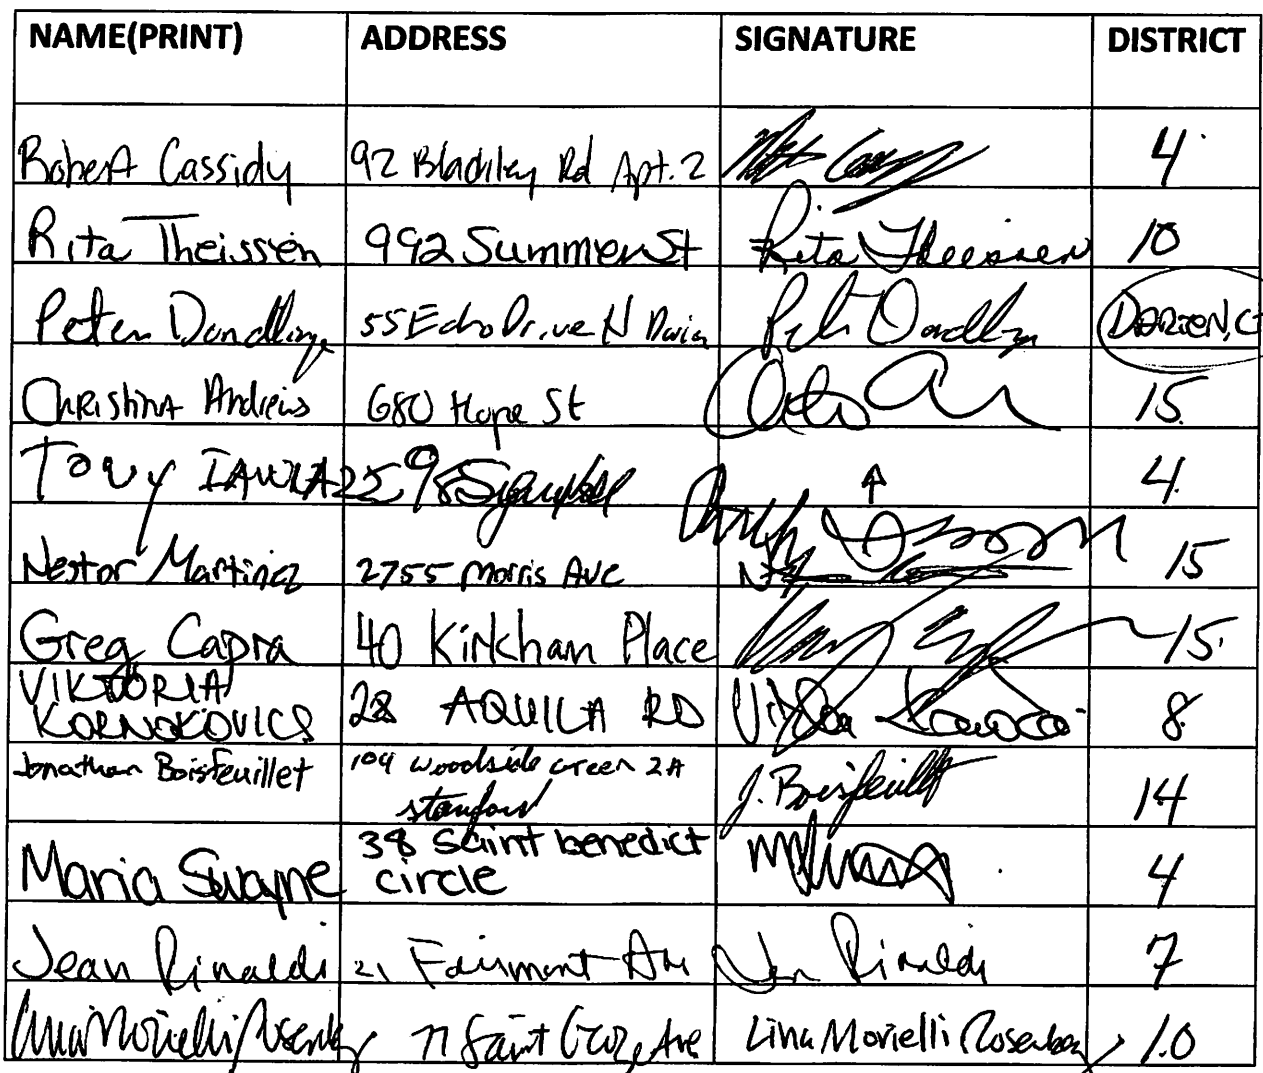 NAME(PRINT) ADDRESS SIGNATURE DISTRICT
Robert Cassidy 92 Blachley Rd Apt. 2 4
Rita Theissen 992 Summer St Rita Theissen 10
Peter 55 Echo Drive N DARIEN, C
Christina Andrews 680 Hope St 15
Tony 4
Nestor Martinez 2755 Morris Ave 15
Greg Capra 40 Kirkham Place 15
VIKTORIA
KORNOKOVICS 28 AQUILA RD 8
Jonathan Boisfeuillet 104 Woodside Green 2A J. Boisfeuillet 14
stamford
38 saint benedict
Maria Swayne circle 4
Jean Rinaldi 21 Fairmont Ave Jean Rinaldi 7
Lina Morielli Rosenberg 77 Saint Ave Lina Morielli Rosenberg 10